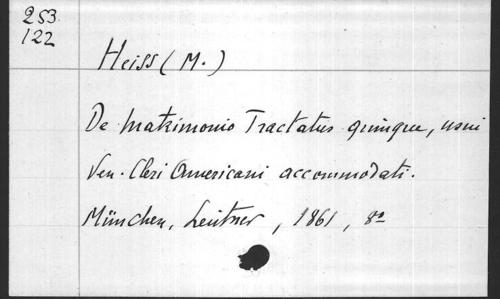 253
122
Heiss (M.)
De matrimonio Tractatus quinque, usui
Ven. Cleri Americani accommodati.
München, Lentner, 1861, 8º